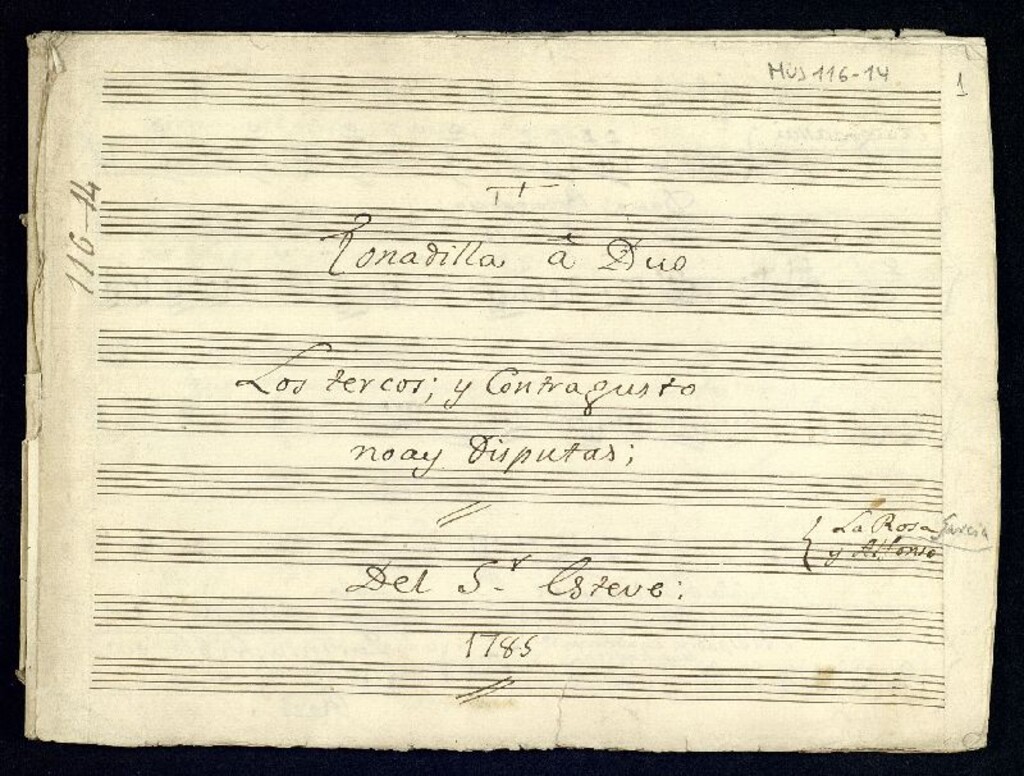 MUS 116-14
1
116-14
Tonadilla â Duo
Los tercos; y Contragusto
noay Disputas;
La Rosa Garcia
y Alfonso
Del S.r Esteve;
1785